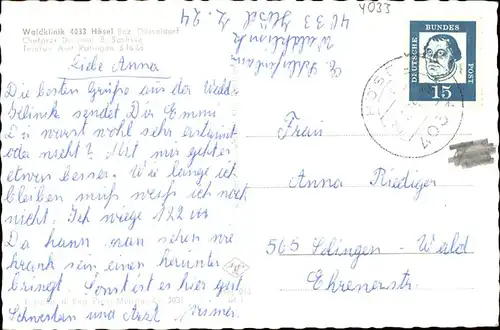 Waldklinik 4033 Hösel Bez. Düsseldorf
Chefarzt Dr. med.
Telefon Amt Ratingen
4033
4033 Hösel Z. 24
Waldklinik
E.
DEUTSCHE BUNDES POST
15
Liebe Anna
Die besten Grüße aus der Wald-
klinik sendet Dir Emmi
Du warst wohl sehr erstaunt
oder nicht? Mit mir geht es
etwas besser. Wie lange ich
bleiben muß weiß ich noch
nicht. Ich wiege 122
Da kann man sehen wie
krank sein einen herunter
bringt. Sonst ist es hier gut
Schwestern und Arzt immer
Frau
Anna Rüdiger
565 Solingen - Wald
Ehrenerstr.